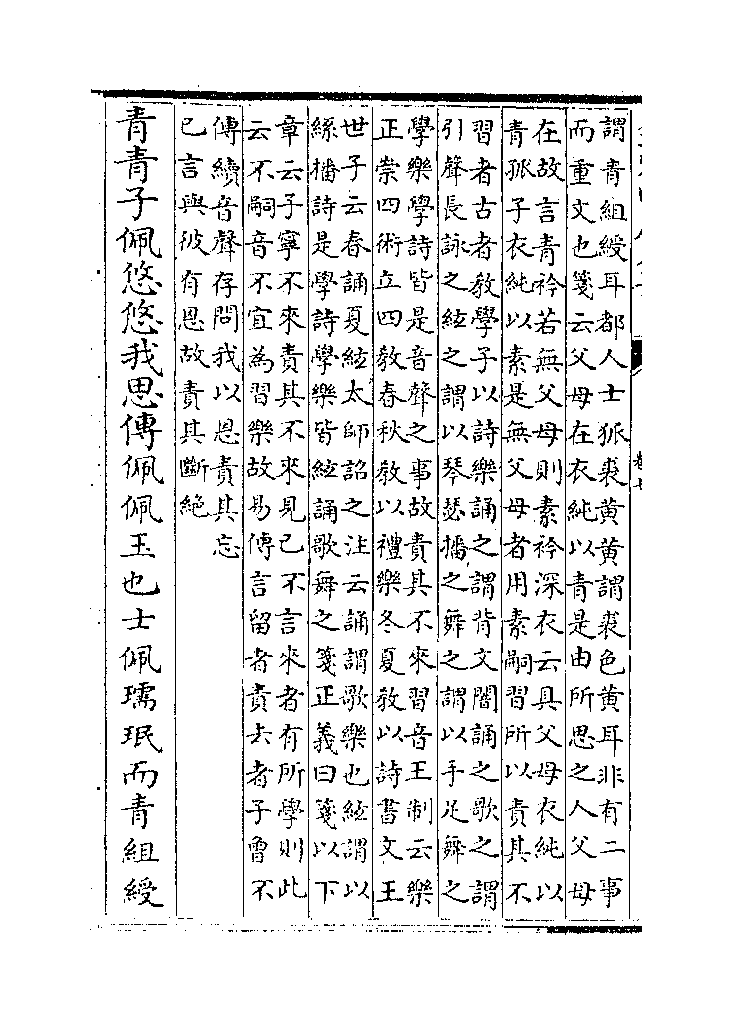 謂青組綬耳都人士狐裘黄黄謂裘色黄耳非有二事
而重文也箋云父母在衣純以青是由所思之人父母
在故言青衿若無父母則素衿深衣云具父母衣純以
青孤子衣純以素是無父母者用素嗣習所以責其不
習者古者教學子以詩樂誦之謂背文闇誦之歌之謂
引聲長詠之絃之謂以琴瑟播之舞之謂以手足舞之
學樂學詩皆是音聲之事故責其不來習音王制云樂
正崇四術立四教春秋教以禮樂冬夏教以詩書文王
世子云春誦夏絃太師詔之注云誦謂歌樂也絃謂以
絲播詩是學詩學樂皆絃誦歌舞之箋正義曰箋以下
章云子寧不來責其不來見已不言來者有所學則此
云不嗣音不宜為習樂故易傳言留者責去者子曾不
傳續音聲存問我以恩責其忘
已言與彼有恩故責其斷絶
青青子佩悠悠我思傳佩佩玉也士佩瓀珉而青組綬